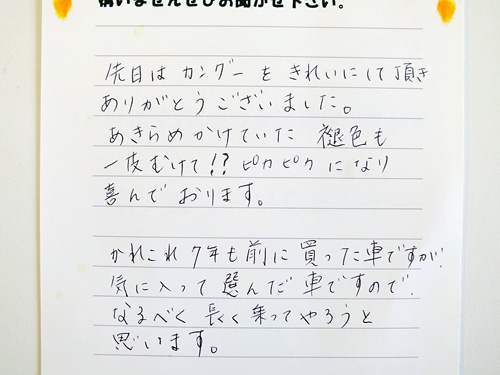 構いませんぜひお聞かせ下さい。
先日は カングー を きれいにして頂き
ありがとうございました。
あきらめかけていた 褪色も
一皮むけて!? ピカピカ になり
喜んで おります。
かれこれ 7年も前に 買った車ですが、
気に入って 選んだ 車ですので、
なるべく 長く乗ってやろうと
思います。